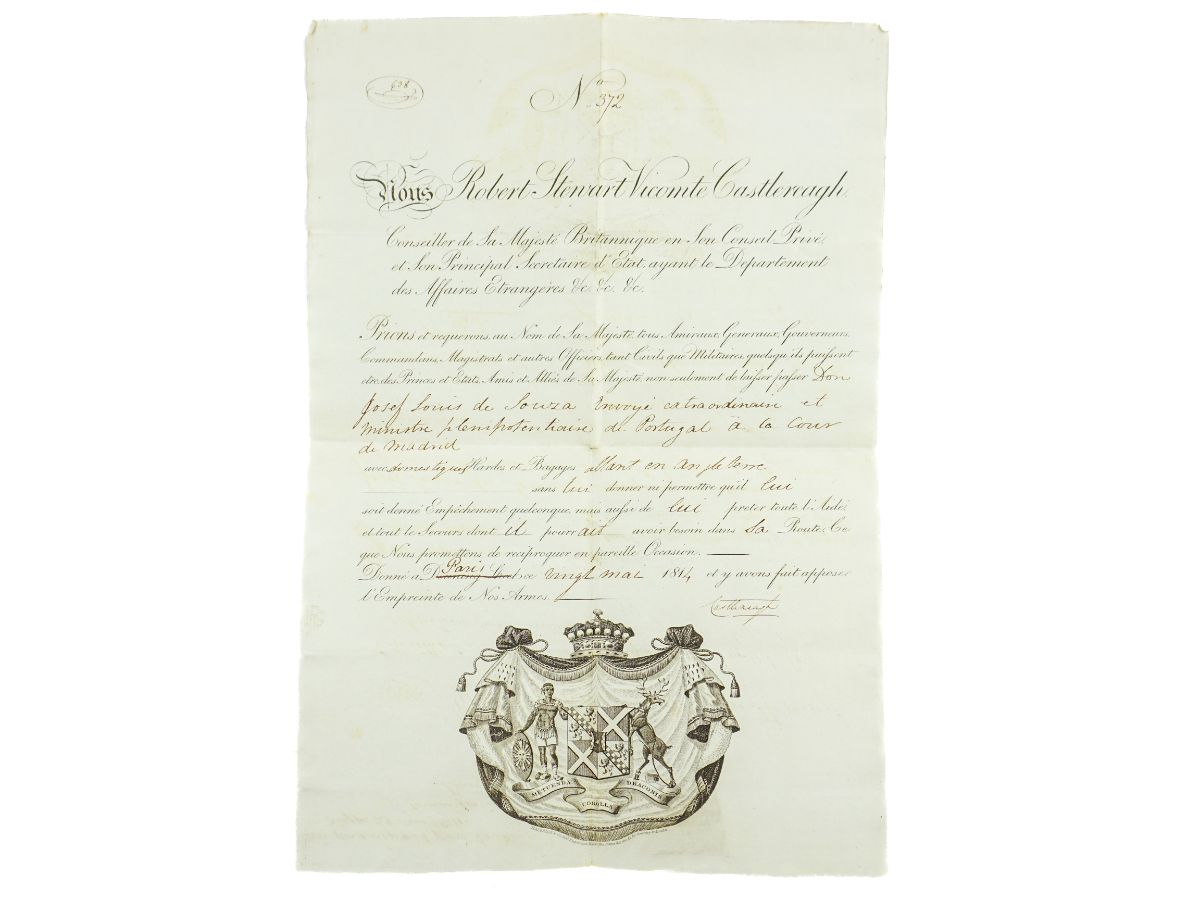 638
No 372
Nous Robert Stewart Vicomte Castlereagh.
Conseiller de Sa Majesté Britannique en Son Conseil Privé,
et Son Principal Secretaire d'Etat, ayant le Departement
des Affaires Etrangères &c. &c. &c.
Prions et requerons, au Nom de Sa Majesté, tous Amiraux, Generaux, Gouverneurs,
Commandans, Magistrats et autres Officiers, tant Civils que Militaires, quelsqu'ils puissent
etre, des Princes et Etats, Amis et Alliés de Sa Majesté, non seulement de laisser passer Don
Josef Louis de Souza Envoyé extraordinaire et
Ministre plenipotentiaire de Portugal à la Cour
de Madrid
avec domestiques Hardes et Bagages allant en Angleterre
sans lui donner ni permettre qu'il lui
soit donné Empêchement quelconque, mais aussi de lui preter toute l'Aide,
et tout le Secours dont il pourrait avoir besoin dans sa Route. Ce
que Nous promettons de reciproquer en pareille Occasion.
Donné à Paris ce vingt mai 1814 et y avons fait apposer
l'Empreinte de Nos Armes.
Castlereagh
METUENDA COROLLA DRACONIS